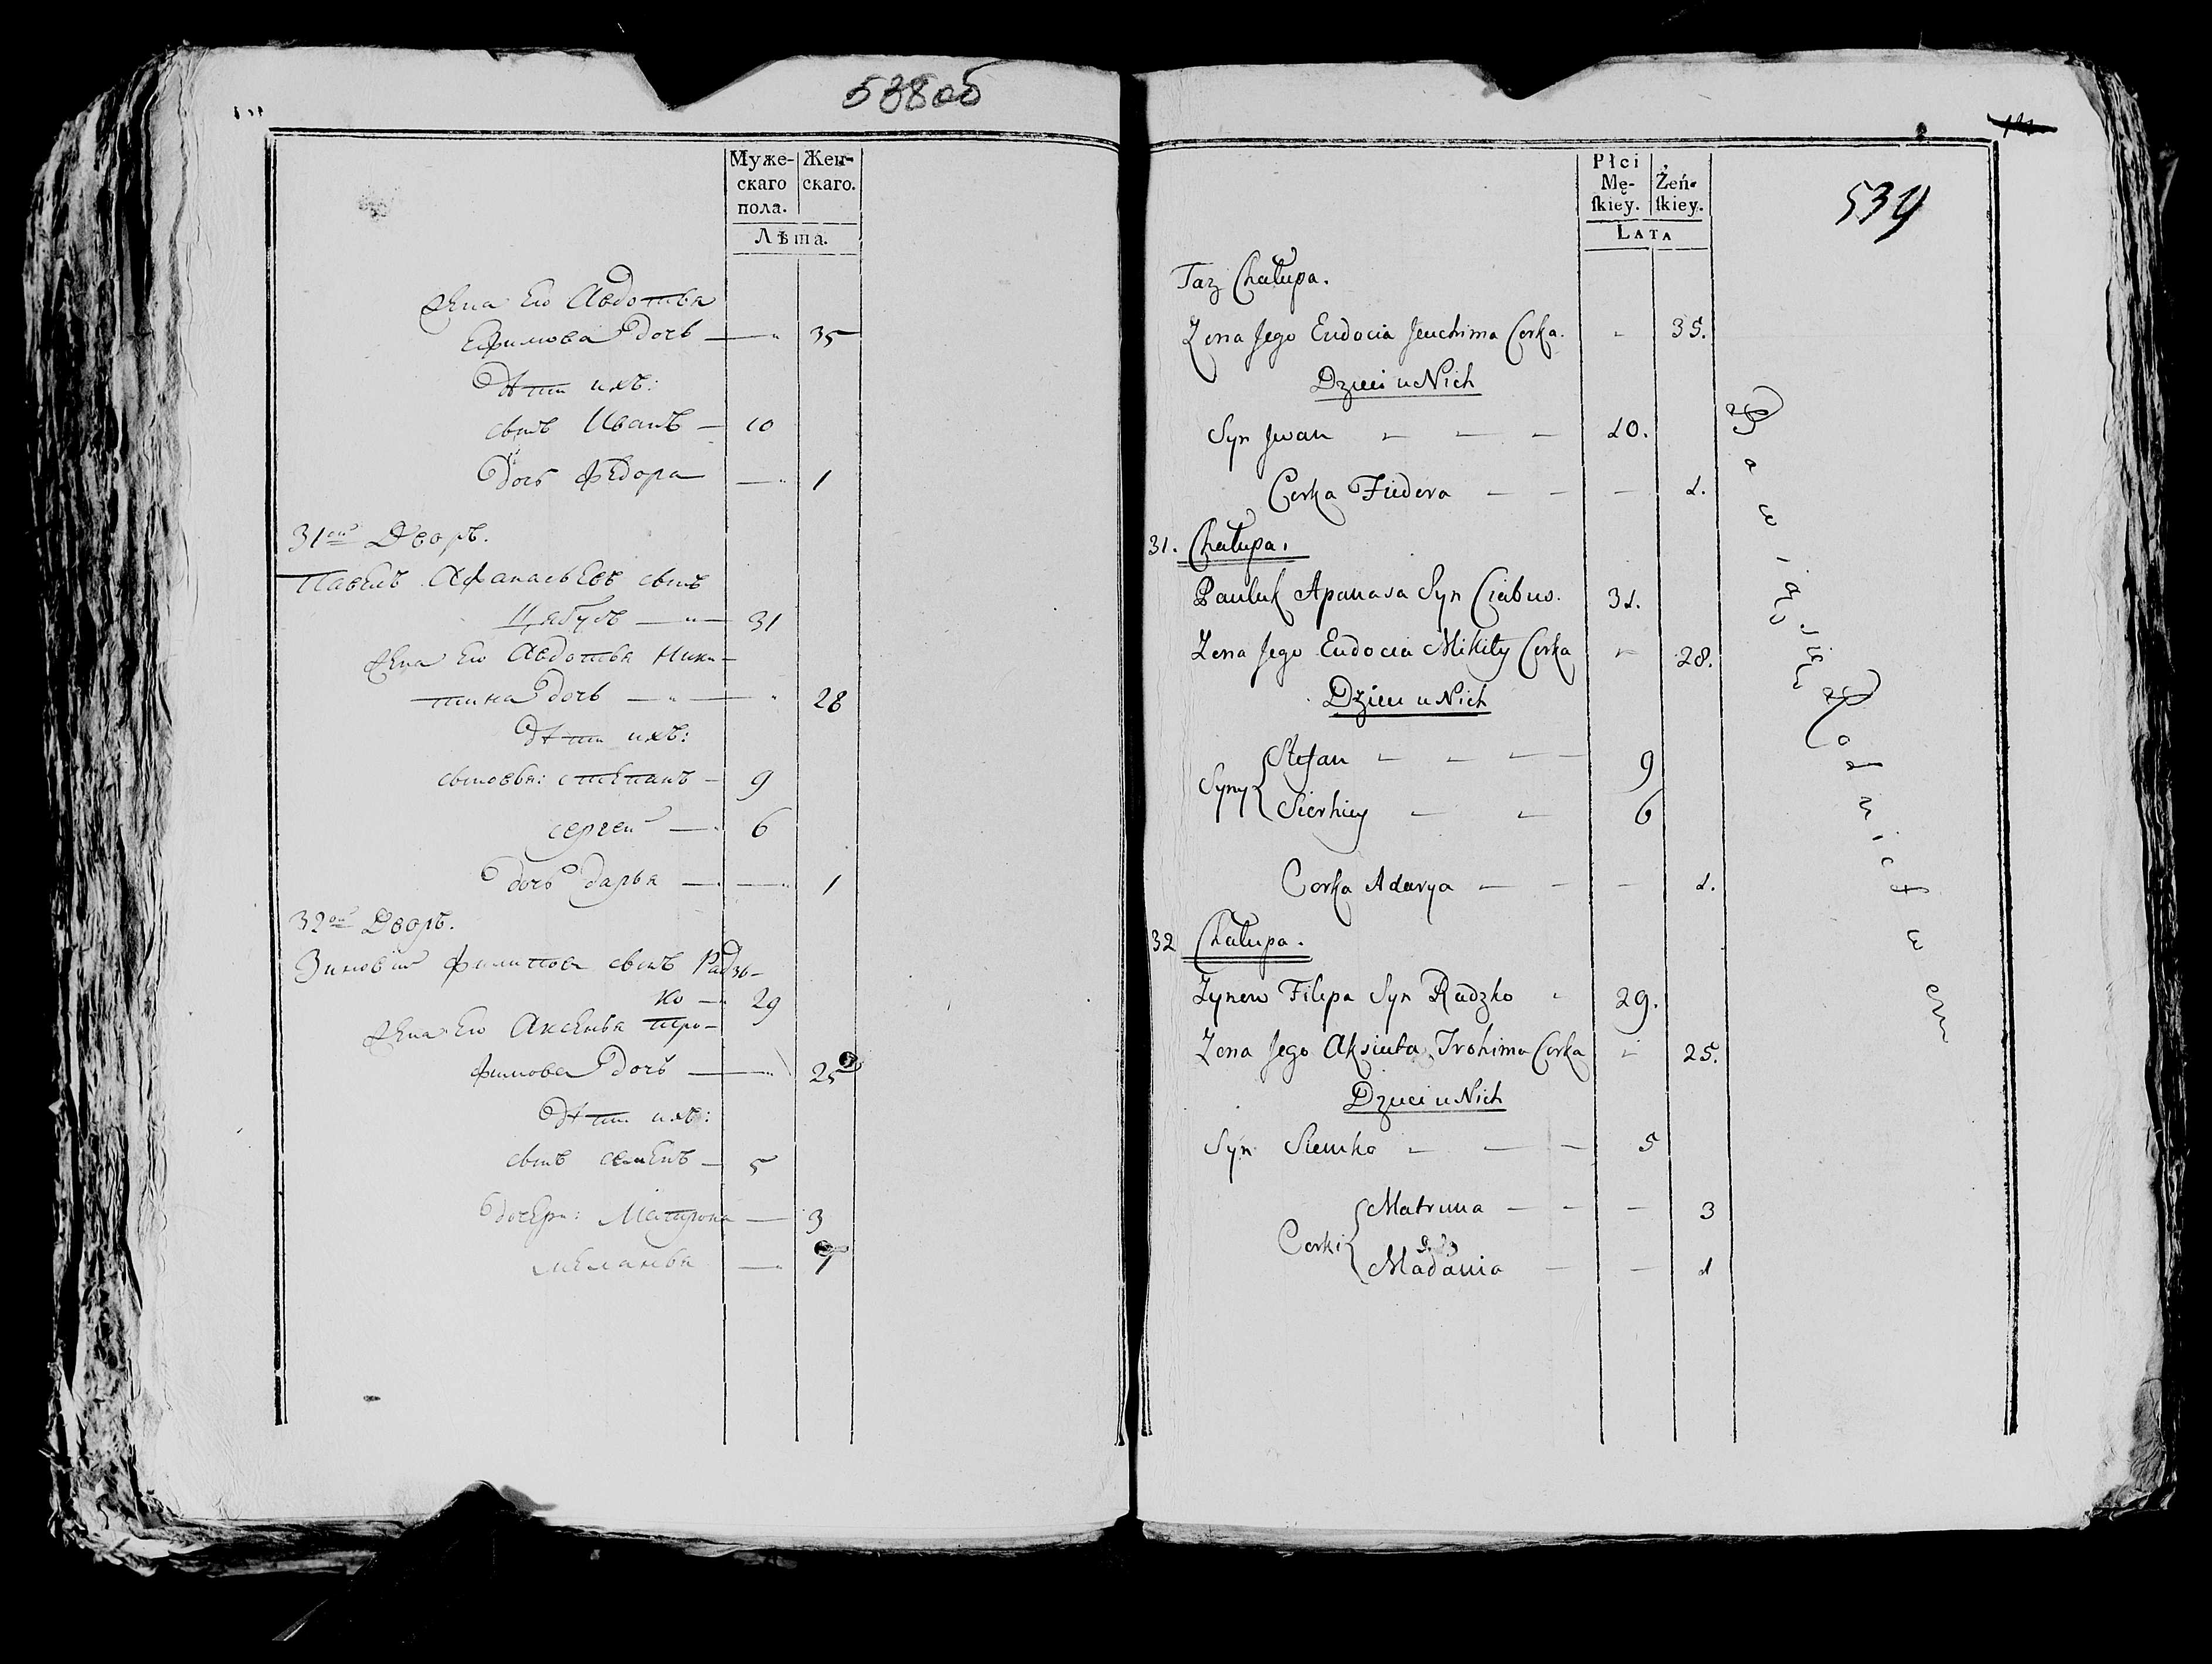 538об
Муже- Жен-
скаго скаго.
пола.
Лѣта.
Жена Его Авдотья
Ефимова дочь — 35
Дѣти ихъ:
сынъ Иванъ — 10
Дочь Федора — 1
31ой Дворъ.
Павелъ Афанасьевъ сынъ
Цябусъ — 31
Жена Его Авдотья Ники-
тина дочь — 28
Дѣти ихъ:
сыновья: степанъ — 9
сергей — 6
дочь дарья — 1
32ой Дворъ.
Зиновій филипова сынъ Радзь-
ко — 29
Жена Его Аксенья тро-
фимова дочь — 25
Дѣти ихъ:
сынъ семенъ — 5
дочери: Матрона — 3
меланья — 1
539
Płci
Mę- Żeń-
skiey. skiey.
LATA
Taz Chałupa.
Zona Jego Eudocia Jeuchima Corka. - 35.
Dzieci u Nich
Syn Jwan — 10.
Corka Fiedora — 1.
31. Chałupa.
Pauluk Apanasa Syn Ciabus. 31.
Zona Jego Eudocia Mikity Corka - 28.
Dzieci u Nich
Syny Stefan — 9
Sierhiey — 6
Corka Adarya — 1.
32 Chałupa.
Zynow Filipa Syn Radzko 29.
Zona Jego Aksiuta Trohima Corka - 25.
Dzieci u Nich
Syn Siemko — 5
Corki Matruna — 3
Madania — 1